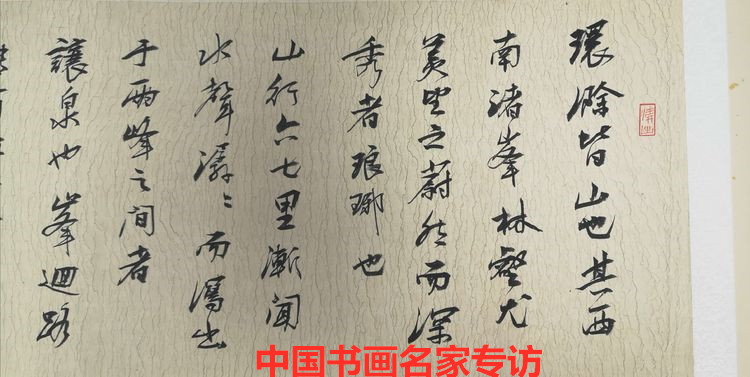 環滁皆山也其西
南诸峯林壑尤
美望之蔚然而深
秀者琅琊也
山行六七里漸闻
水聲潺〻而瀉出
于两峰之间者
讓泉也峯迴路
中国书画名家专访